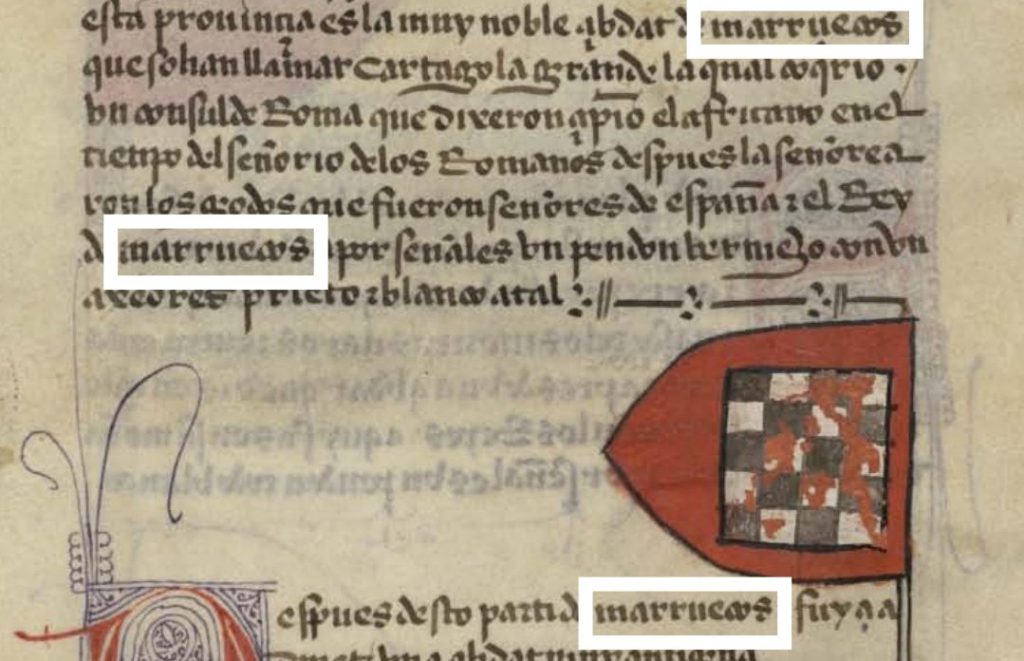 esta prouinçia es la muy noble çibdat de marruecos
que solian llamar cartago la grande la qual conqrio
vn consul de Roma que dixeron çipio el africano en el
tienpo del señorio delos Romanos despues la señorea
ron los godos que fueron señores de españa ⁊ el Rey
de marruecos a por señales vn pendon bermejo con vn
axedres prieto ⁊ blanco atal
espues desto parti de marruecos fuy a a